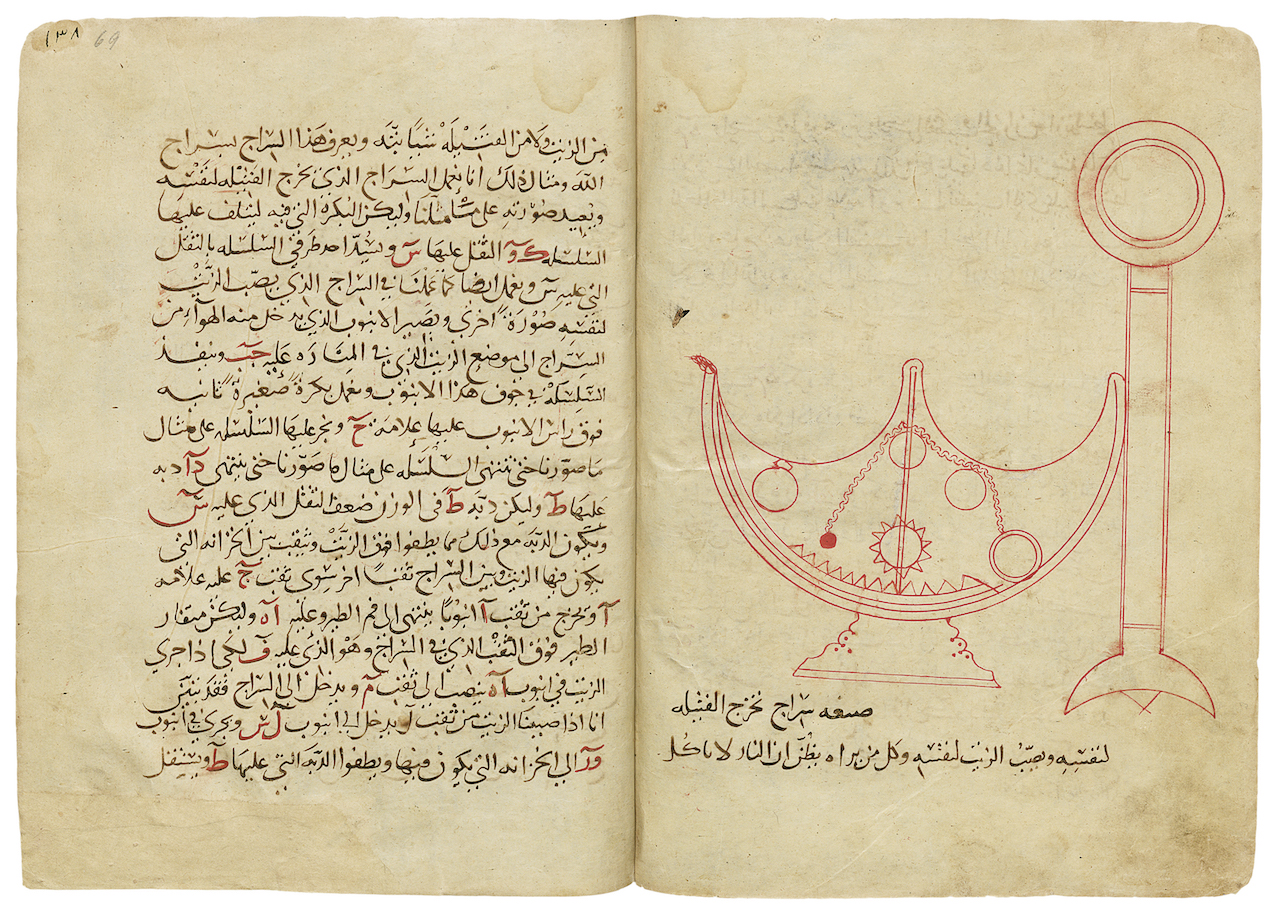 صنعه سراج يخرج الفتيله
لنفسه ويصب الزيت لنفسه وكل من يراه يظن ان النار لا تاكل
١٣٨ 69
من الزيت ولا من الفتيله شيا بته ويعرف هذا السراج بسراج
الله ومثال ذلك انا نعمل السراج الذي يخرج الفتيله لنفسه
ونعيد صورته على وليكن البكرة التي فيه ليلتف عليها
السلسله الثقل عليها س طرفي السلسله بالثقل
الذي عليه س ونعمل ايضا كما عملنا في السراج الذي يصب الزيت
لنفسه صورة اخرى ونصير الانبوب الذي يدخل منه الهواء من
السراج الى موضع الزيت الذي في المناره عليه جب وينفذ
السلسله في جوف هذا الانبوب ونعمل بكرة صغيرة ثانيه
فوق راس الانبوب عليها علامه ح ونجر عليها السلسله على مثال
ما صورنا حتى تنتهي السلسله على مثال ما صورنا حتى ينتهي دآ دبه
عليها ط وليكن دبه ط في الوزن ضعف الثقل الذي عليه س
ويكون الدبه مع ذلك مما يطفوا فوق الزيت ونثقب بين الخزانه التي
يكون فيها الزيت وبين السراج ثقبا اخر سوى ثقب ج عليه علامه
آ ونخرج من ثقب آ انبوبا ينتهي الى فم الطير وعليه آه وليكن منقار
الطير فوق الثقب الذي في السراج وهو الذي عليه ف لكي اذا جرى
الزيت في انبوب آه ينصب الى ثقب م ويدخل الى السراج فقد تبين
انا اذا صببنا الزيت من ثقب ل يدخل الى انبوب ل س ويجري في انبوب
ور الى الخزانه التي يكون فيها ويطفوا الدبه التي عليها ط ويستقل